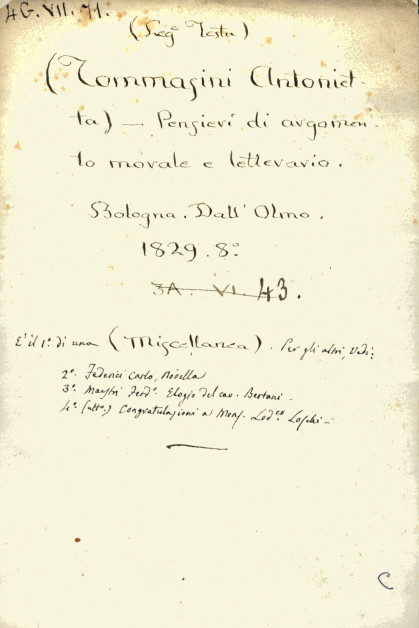 4G. VII. 71.
(Seg.e Testa)
(Tommasini Antoniet-
ta) — Pensieri di argomen-
to morale e letterario.
Bologna. Dall' Olmo.
1829. 8.°
3A. VI. 43.
E' il 1.° di una (Miscellanea). Per gli altri, Vedi:
2.° Federici Carlo, Novella
3.° Maestri Ferd.° Elogio del cav. Bertani –
4.° Congratulazioni a Mons. Lod.co Loschi –
C